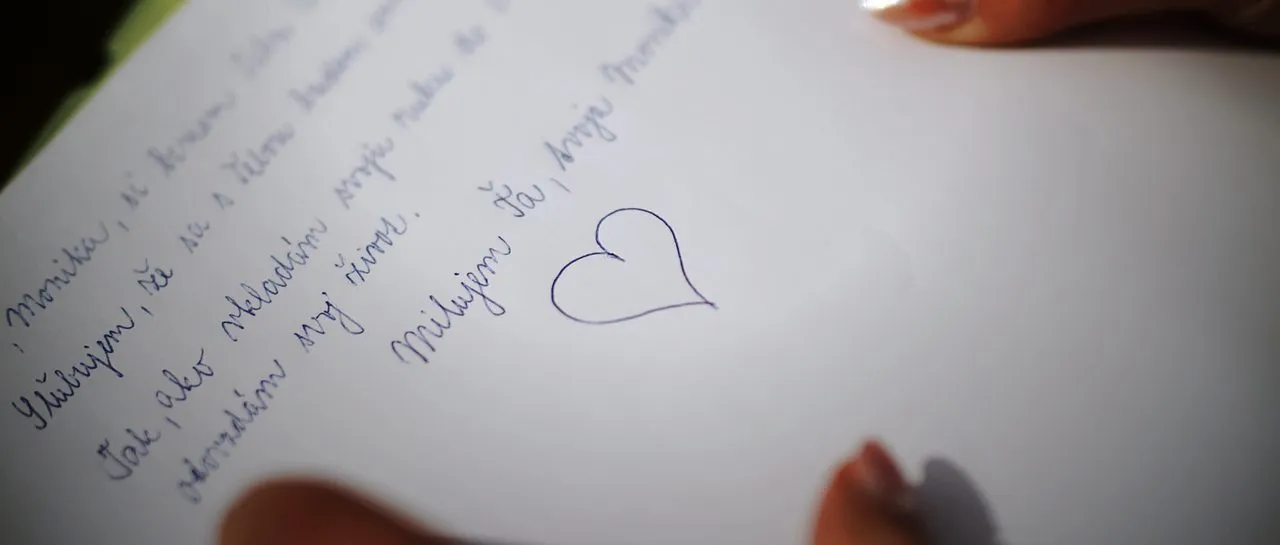 , Monika, si beriem
Sľubujem, že sa s Tebou budem
Tak, ako vkladám svoju ruku do
odovzdám svoj život.
Milujem Ťa, svoja Monika